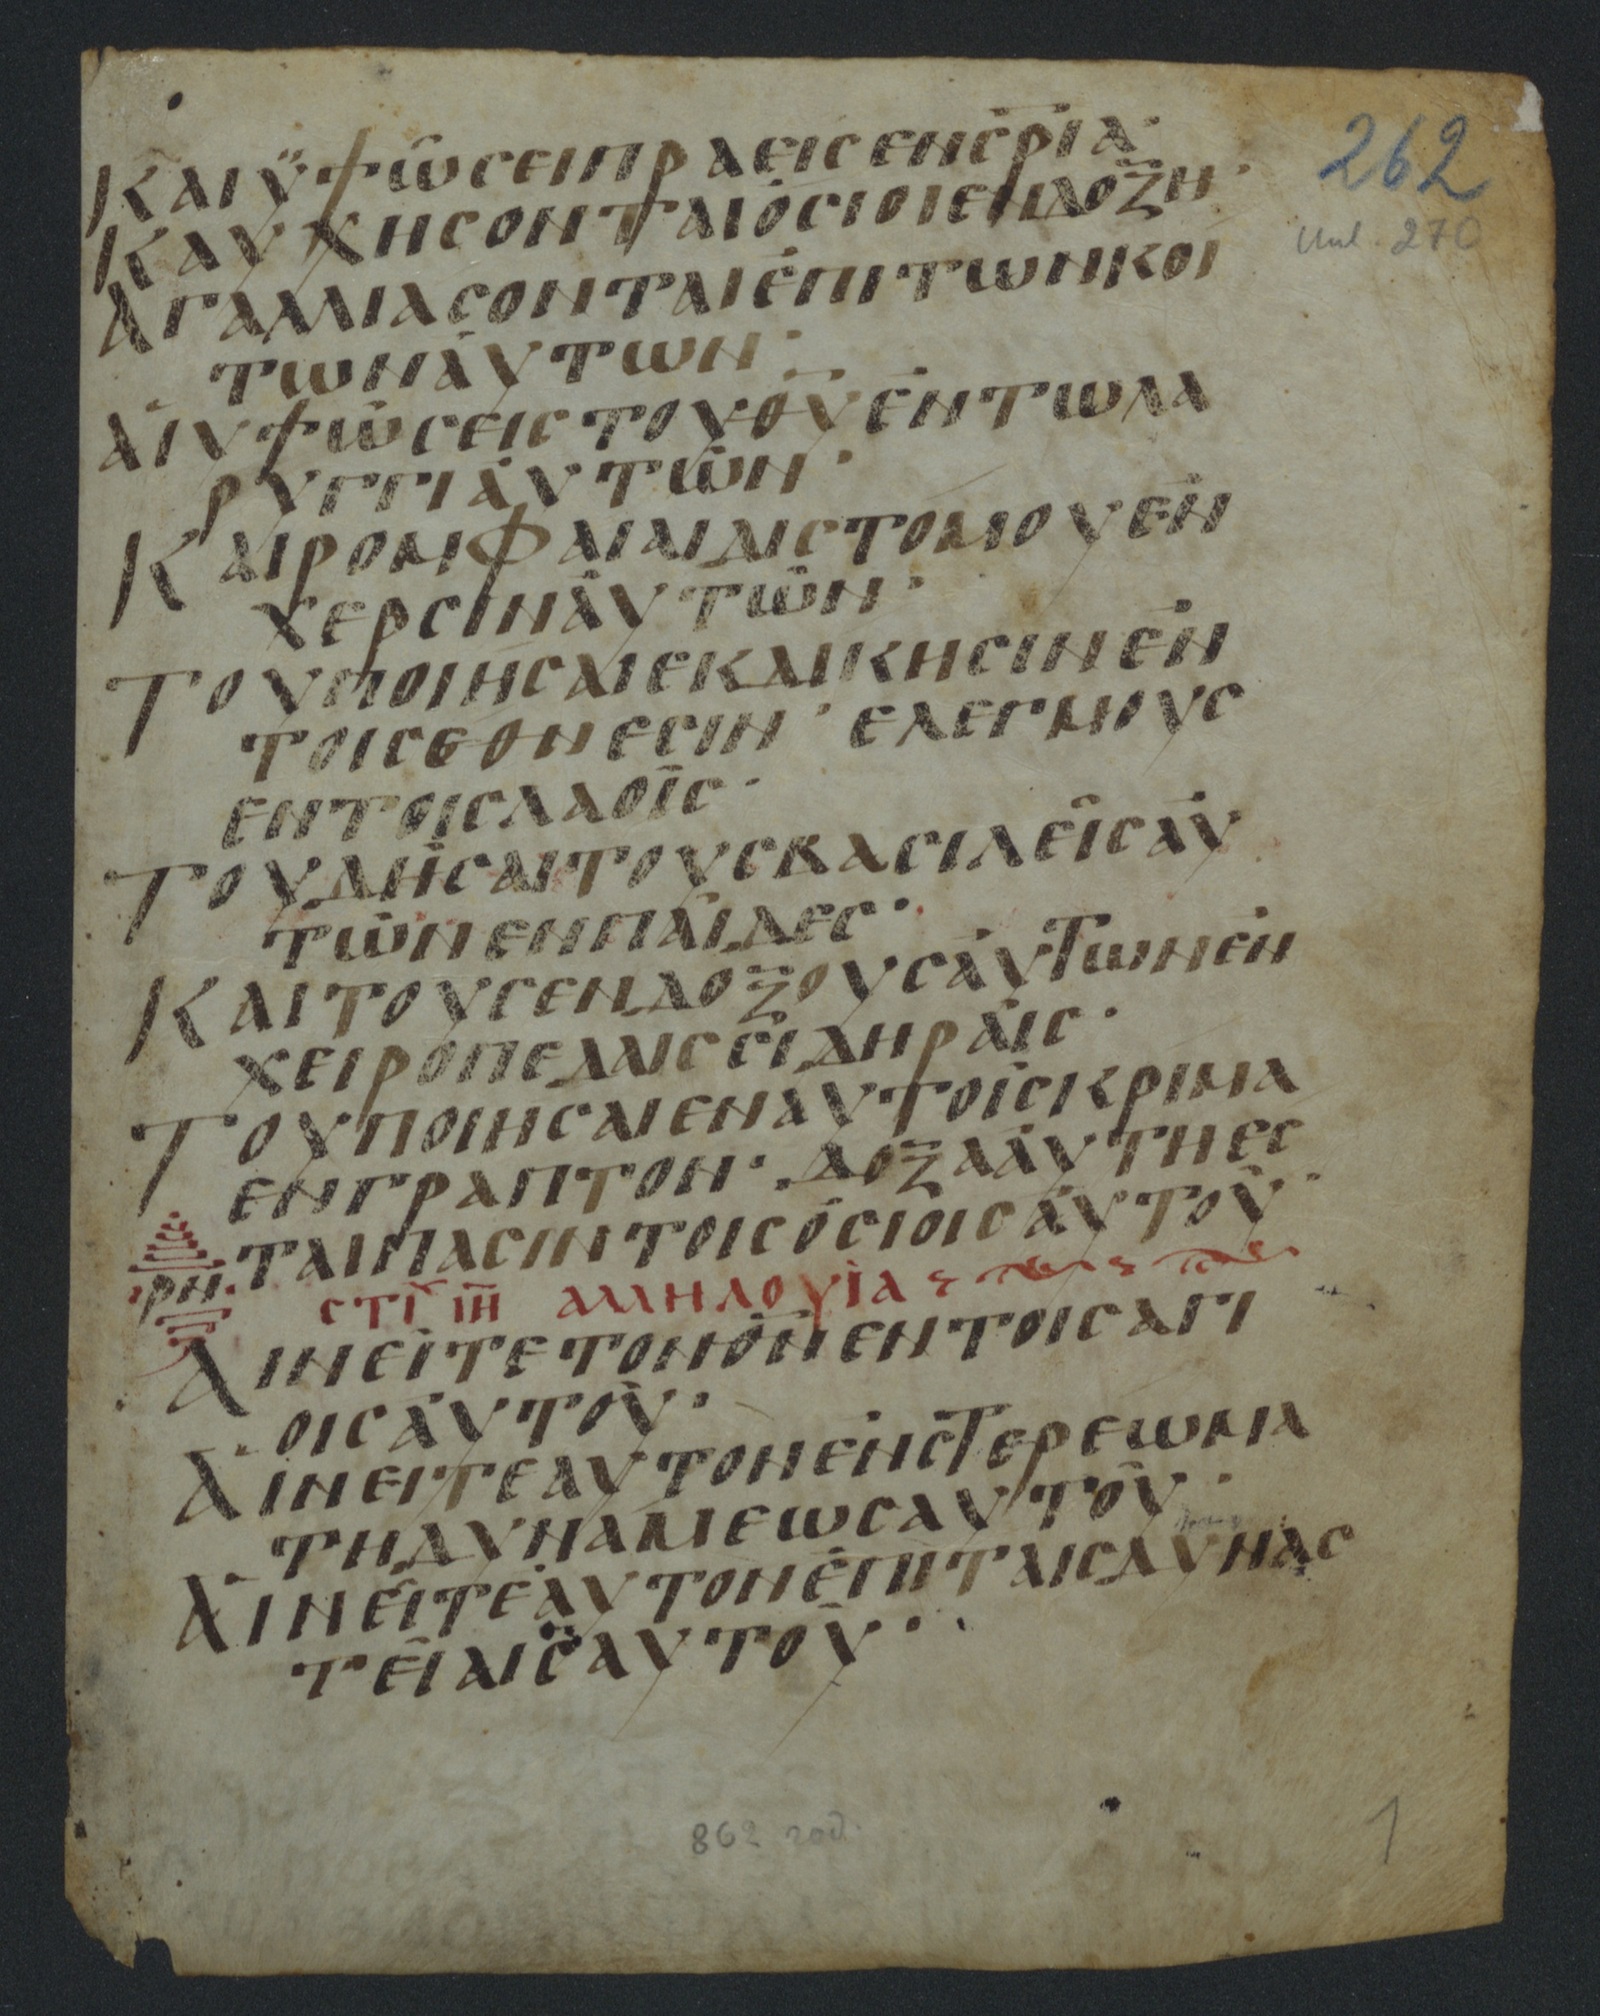 262
ΚΑΙ ΫΨΩΣΕΙ ΠΡΑΕΙΣ ΕΝ Σ̅Ρ̅Ι̅Α·
ΚΑΥΧΗΣΟΝΤΑΙ ΟΣΙΟΙ ΕΝ ΔΟΞΗ·
270
ΑΓΑΛΛΙΑΣΟΝΤΑΙ ΕΠΙ ΤΩΝ ΚΟΙ
ΤΩΝ ΑΥΤΩΝ·
ΑΙ ΥΨΩΣΕΙΣ ΤΟΥ Θ̅Υ̅ ΕΝ ΤΩ ΛΑ
ΡΥΓΓΙ ΑΥΤΩΝ·
ΚΑΙ ΡΟΜΦΑΙΑΙ ΔΙΣΤΟΜΟΥ ΕΝ
ΧΕΡΣΙΝ ΑΥΤΩΝ·
ΤΟΥ ΠΟΙΗΣΑΙ ΕΚΔΙΚΗΣΙΝ ΕΝ
ΤΟΙΣ ΕΘΝΕΣΙΝ· ΕΛΕΓΜΟΥΣ
ΕΝ ΤΟΙΣ ΛΑΟΙΣ·
ΤΟΥ ΔΗΣΑΙ ΤΟΥΣ ΒΑΣΙΛΕΙΣ ΑΥ
ΤΩΝ ΕΝ ΠΑΙΔΕΣ·
ΚΑΙ ΤΟΥΣ ΕΝΔΟΞΟΥΣ ΑΥΤΩΝ ΕΝ
ΧΕΙΡΟΠΕΔΑΙΣ ΣΙΔΗΡΑΙΣ·
ΤΟΥ ΠΟΙΗΣΑΙ ΕΝ ΑΥΤΟΙΣ ΚΡΙΜΑ
ΕΝΓΡΑΠΤΟΝ· ΔΟΞΑ ΑΥΤΗ ΕΣ
ΤΑΙ ΠΑΣΙΝ ΤΟΙΣ ΟΣΙΟΙΣ ΑΥΤΟΥ·
ΡΝ ΣΤΙ ΙΗ ΑΛΛΗΛΟΥΪΑ
ΑΙΝΕΙΤΕ ΤΟΝ Θ̅Ν̅ ΕΝ ΤΟΙΣ ΑΓΙ
ΟΙΣ ΑΥΤΟΥ·
ΑΙΝΕΙΤΕ ΑΥΤΟΝ ΕΝ ΣΤΕΡΕΩΜΑ
ΤΗ ΔΥΝΑΜΕΩΣ ΑΥΤΟΥ·
ΑΙΝΕΙΤΕ ΑΥΤΟΝ ΕΠΙ ΤΑΙΣ ΔΥΝΑΣ
ΤΕΙΑΙΣ ΑΥΤΟΥ·
862 год
1